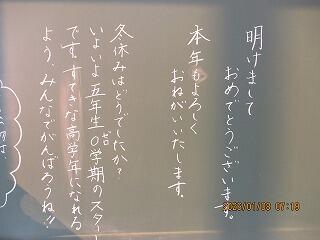 明けまして
おめでとうございます。
本年もよろしく
おねがいいたします。
冬休みはどうでしたか?
いよいよ五年生0学期のスター
ゼロ
です。すてきな高学年になれる
よう、みんなでがんばろうね!!